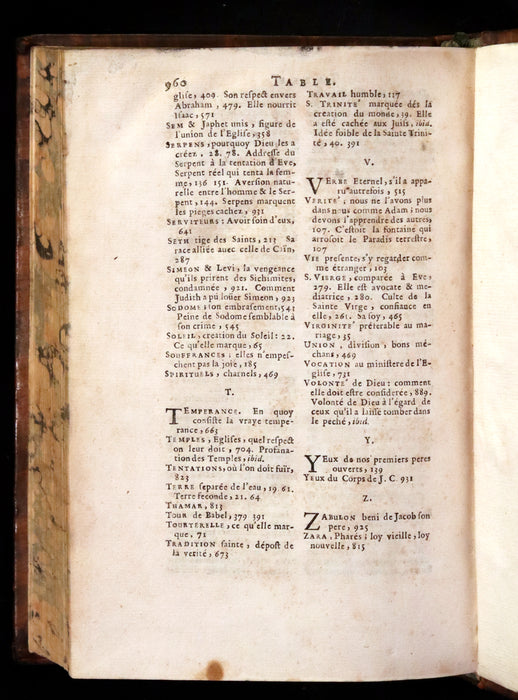 960 TABLE.
glise, 409. Son respect envers
Abraham, 479. Elle nourrit
Isaac, 571
SEM & Japhet unis, figure de
l'union de l'Eglise, 358
SERPENS, pourquoy Dieu les a
créez, 28. 78. Addresse du
Serpent à la tentation d'Eve,
Serpent réel qui tenta la fem-
me, 136 151. Aversion natu-
relle entre l'homme & le Ser-
pent, 144. Serpens marquent
les pieges cachez, 931
SERVITEURS: Avoir soin d'eux,
641
SETH tige des Saints, 213 Sa
race alliée avec celle de Caïn,
287
SIMEON & Levi, la vengeance
qu'ils prirent des Sichimites,
condamnée, 921. Comment
Judith a pû louer Simeon, 923
SODOME: son embrasement, 541
Peine de Sodome semblable à
son crime, 545
SOLEIL, creation du Soleil: 22.
Ce qu'elle marque, 65
SOUFFRANCES: elles n'empes-
chent pas la joie, 185
SPIRITUELS, charnels, 469
T.
TEMPERANCE. En quoy
consiste la vraye tempe-
rance, 663
TEMPLES, Eglises, quel respect
on leur doit, 704. Profana-
tion des Temples, ibid.
TENTATIONS, où l'on doit fuïr,
823
TERRE separée de l'eau, 19. 61.
Terre feconde, 21. 64
THAMAR, 813
TOUR de Babel, 379 391
TOURTERELLE, ce qu'elle mar-
que, 71
TRADITION sainte, dépost de
la verité, 673
TRAVAIL humble, 117
S. TRINITE' marquée dés la
creation du monde, 39. Elle
a esté cachée aux Juifs, ibid.
Idée foible de la Sainte Trini-
té, 40. 391
V.
VERBE Eternel, s'il a appa-
ru autrefois, 515
VERITE', nous ne l'avons plus
dans nous comme Adam; nous
devons l'apprendre des autres,
107. C'estoit la fontaine qui
arrosoit le Paradis terrestre,
107
VIE presente, s'y regarder com-
me étranger, 103
S. VIERGE, comparée à Eve,
279. Elle est avocate & me-
diatrice, 280. Culte de la
Sainte Virge, confiance en
elle, 261. Sa foy, 465
VIRGINITE' préferable au ma-
riage, 35
UNION, division, bons mé-
chans, 469
VOCATION au ministere de l'E-
glise, 731
VOLONTE' de Dieu: comment
elle doit estre considerée, 889.
Volonté de Dieu à l'égard de
ceux qu'il a laissé tomber dans
le peché, ibid.
Y.
YEUX de nos premiers peres
ouverts, 139
YEUX du Corps de J. C. 931
Z.
ZABULON beni de Jacob son
pere, 925
ZARA, Pharés; loy vieille, loy
nouvelle, 815